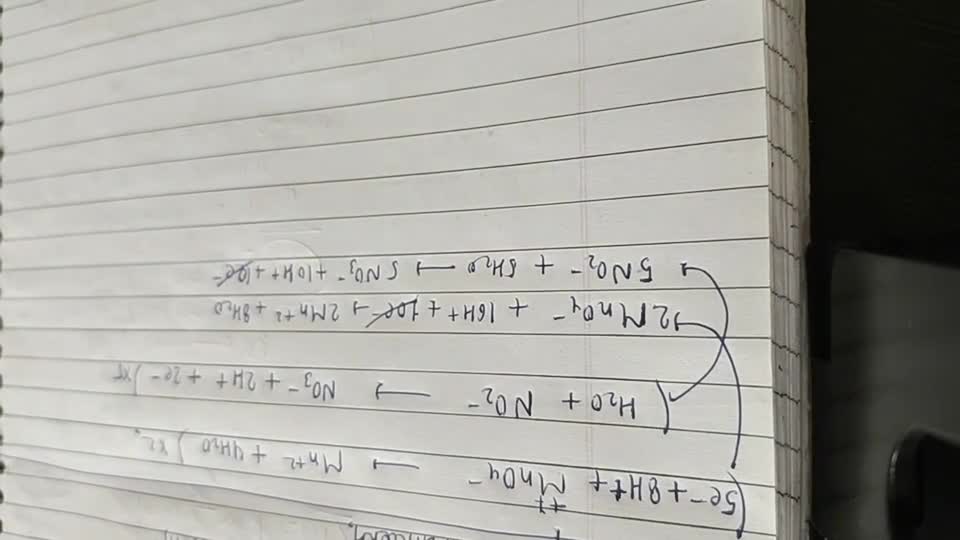 +7
(5e- + 8H+ + MnO4- → Mn+2 + 4H2O ) x2
(H2O + NO2- → NO3- + 2H+ + 2e- ) x5
2MnO4- + 16H+ + 10e- → 2Mn+2 + 8H2O
5NO2- + 5H2O → 5NO3- + 10H+ + 10e-